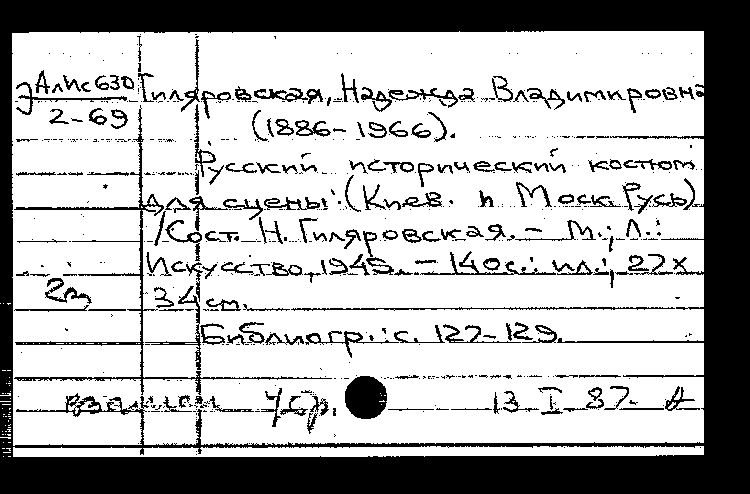 Э АлИс630 Гиляровская, Надежда Владимировна
2-69 (1886-1966).
Русский исторический костюм
для сцены: (Киев. и Моск. Русь)
/Сост. Н. Гиляровская. - М.; Л.:
Искусство, 1945. - 140с.: ил.; 27х
2э 34 см.
Библиогр.: с. 127-129.
взамен 13 I 87